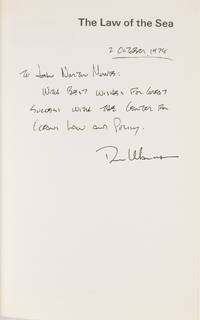 The Law of the Sea
2 October 1976
To John Norton Moore:
With Best Wishes for Great
Success with the Center for
Oceans Law and Policy.